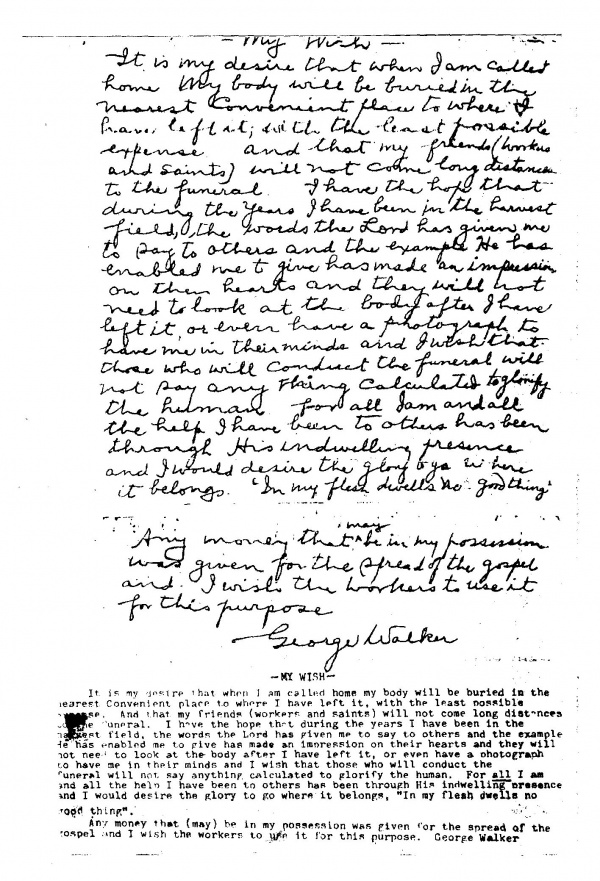 — My Wish —
It is my desire that when I am called
home My body will be buried in the
nearest Convenient place to where I
have left it; with the least possible
expense and that my friends (workers
and saints) will not come long distances
to the funeral. I have the hope that
during the Years I have been in the harvest
field, the words the Lord has given me
to say to others and the example He has
enabled me to give has made an impression
on their hearts and they will not
need to look at the body after I have
left it, or even have a photograph to
have me in their minds and I wish that
those who will conduct the funeral will
not say any thing calculated to glorify
the human. For all I am and all
the help I have been to others has been
through His indwelling presence
and I would desire the glory to go where
it belongs. "In my flesh dwells no good thing"
Any money that ^may be in my possession
was given for the spread of the gospel
and I wish the workers to use it
for this purpose
George Walker
—MY WISH—
It is my desire that when I am called home my body will be buried in the
nearest Convenient place to where I have left it, with the least possible
And that my friends (workers and saints) will not come long distances
funeral. I have the hope that during the years I have been in the
field, the words the Lord has given me to say to others and the example
He has enabled me to give has made an impression on their hearts and they will
not need to look at the body after I have left it, or even have a photograph
to have me in their minds and I wish that those who will conduct the
funeral will not say anything calculated to glorify the human. For all I am
and all the help I have been to others has been through His indwelling presence
and I would desire the glory to go where it belongs, "In my flesh dwells no
good thing".
Any money that (may) be in my possession was given for the spread of the
gospel and I wish the workers to use it for this purpose. George Walker